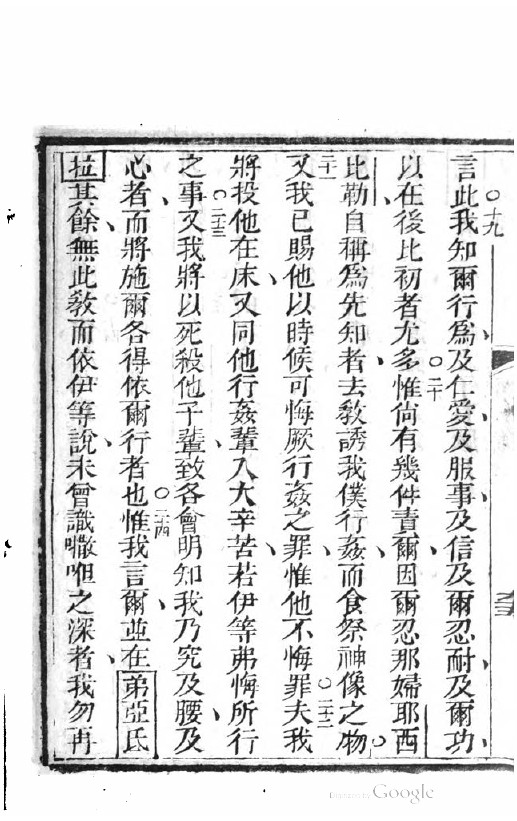 言此○十九我知爾行為及仁愛及服事及信及爾忍耐及爾功
以在後比初者尤多○二十惟尙有幾件責爾因爾忍那婦耶西
比勒自稱為先知者去敎誘我僕行姦而食祭神像之物○
二十一又我已賜他以時候可悔厥行姦之罪惟他不悔罪○二十二夫我
將投他在床又同他行姦輩入大辛苦若伊等弗悔所行
之事○二十三又我將以死殺他子輩致各會明知我乃究及腰及
心者而將施爾各得依爾行者也○二十四惟我言爾並在弟亞氏
拉其餘無此敎而依伊等說未曾識㗮呾之深者我勿再
Digitized by Google